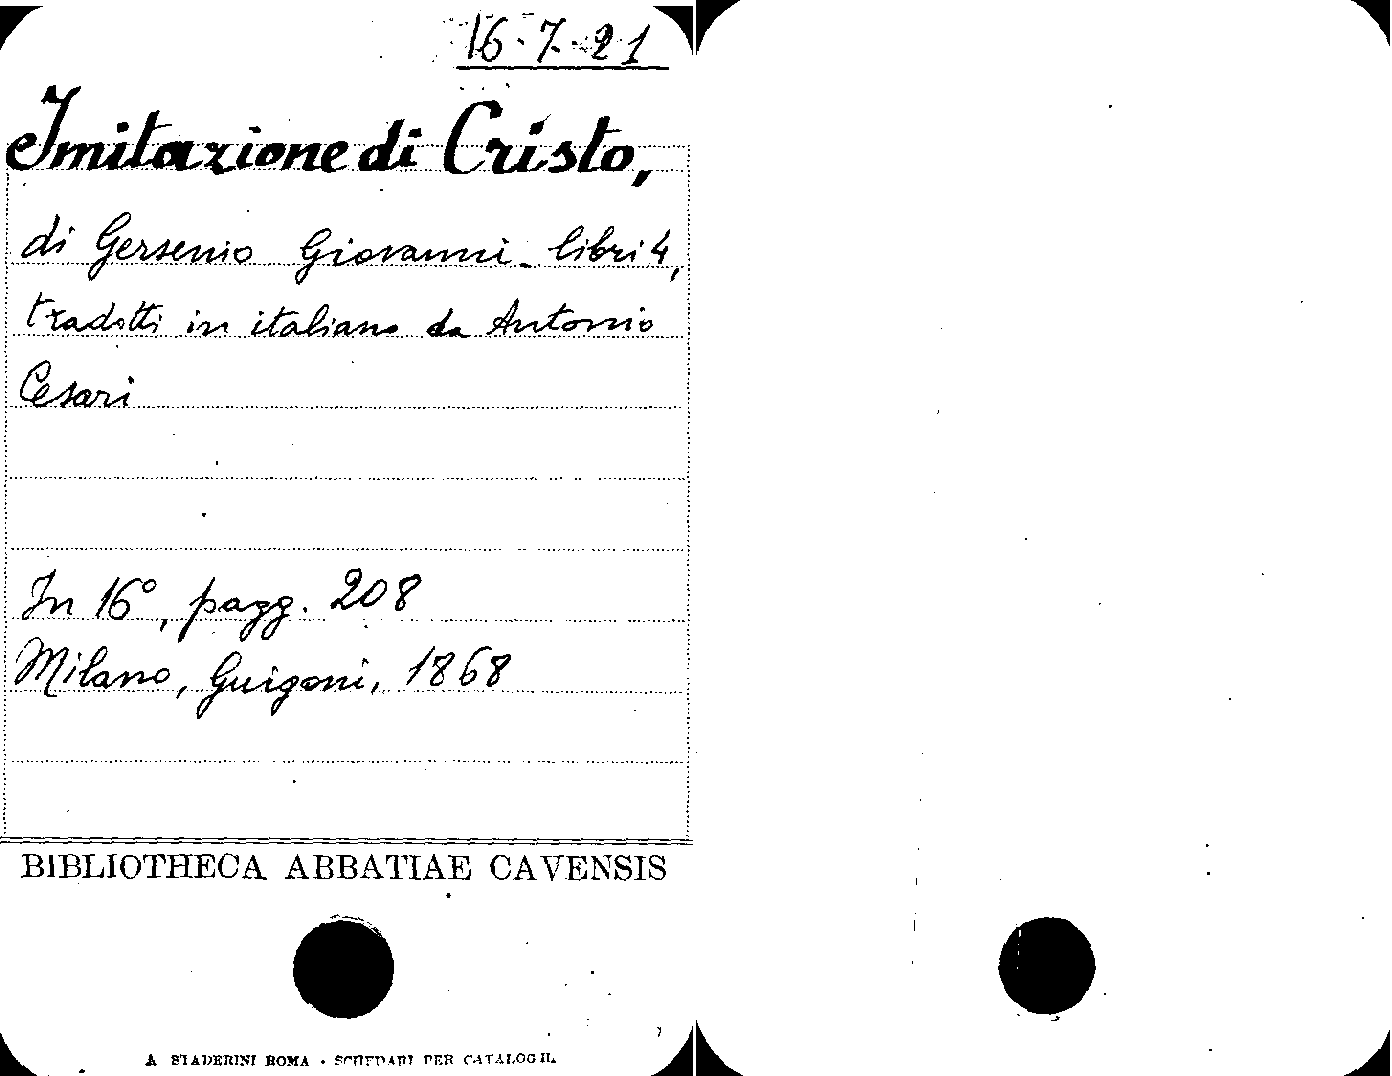 16-7-21
Imitazione di Cristo,
di Gersenio Giovanni - libri 4,
tradotti in italiano da Antonio
Cesari
In 16°, pagg. 208
Milano, Guigoni, 1868
BIBLIOTHECA ABBATIAE CAVENSIS
A. STADERINI ROMA • SCHEDARI PER CATALOGHI